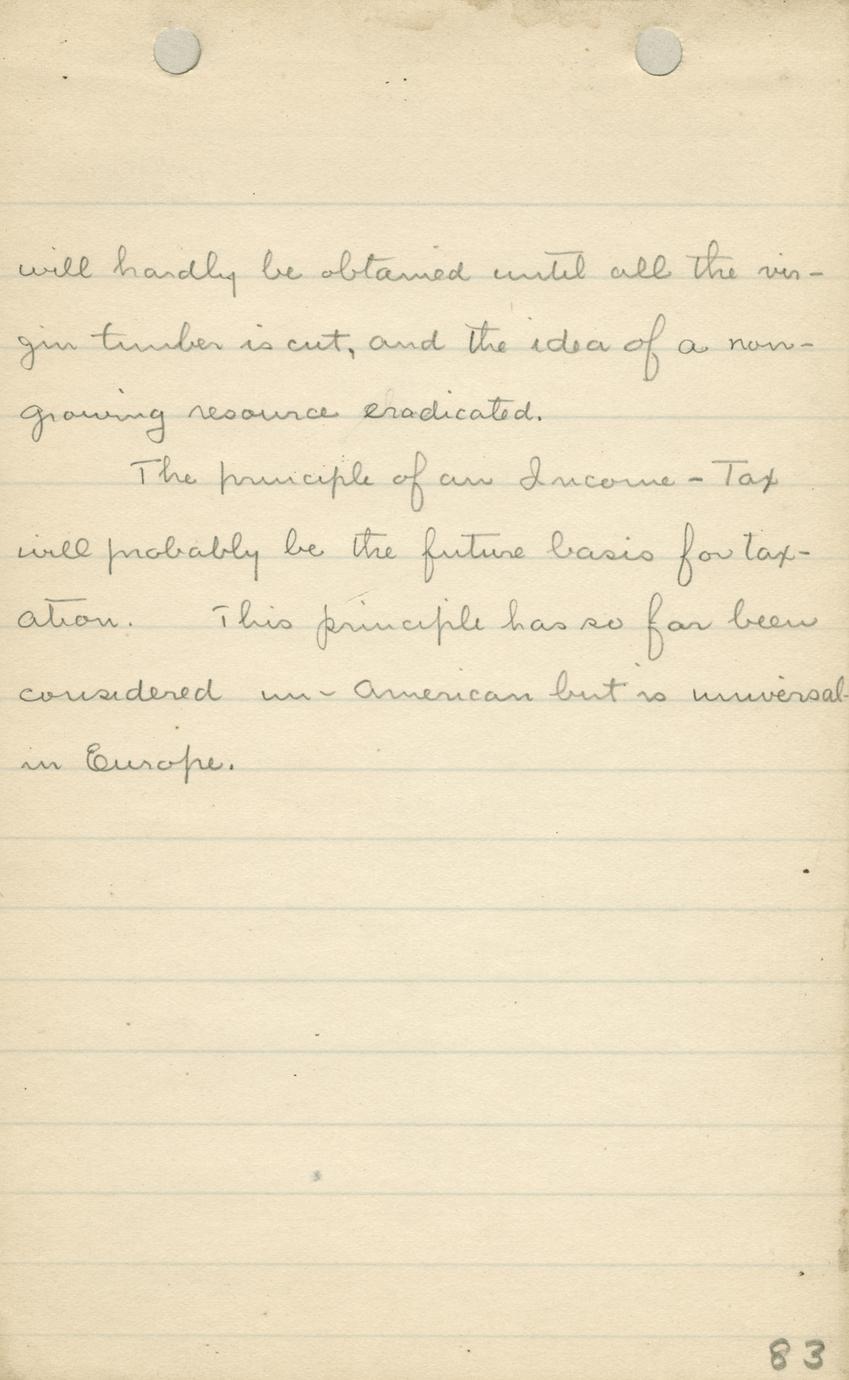 will hardly be obtained until all the vir-
gin timber is cut, and the idea of a non-
growing resource eradicated.
The principle of an Income - Tax
will probably be the future basis for tax-
ation. This principle has so far been
considered un- American but is universal
in Europe.
83